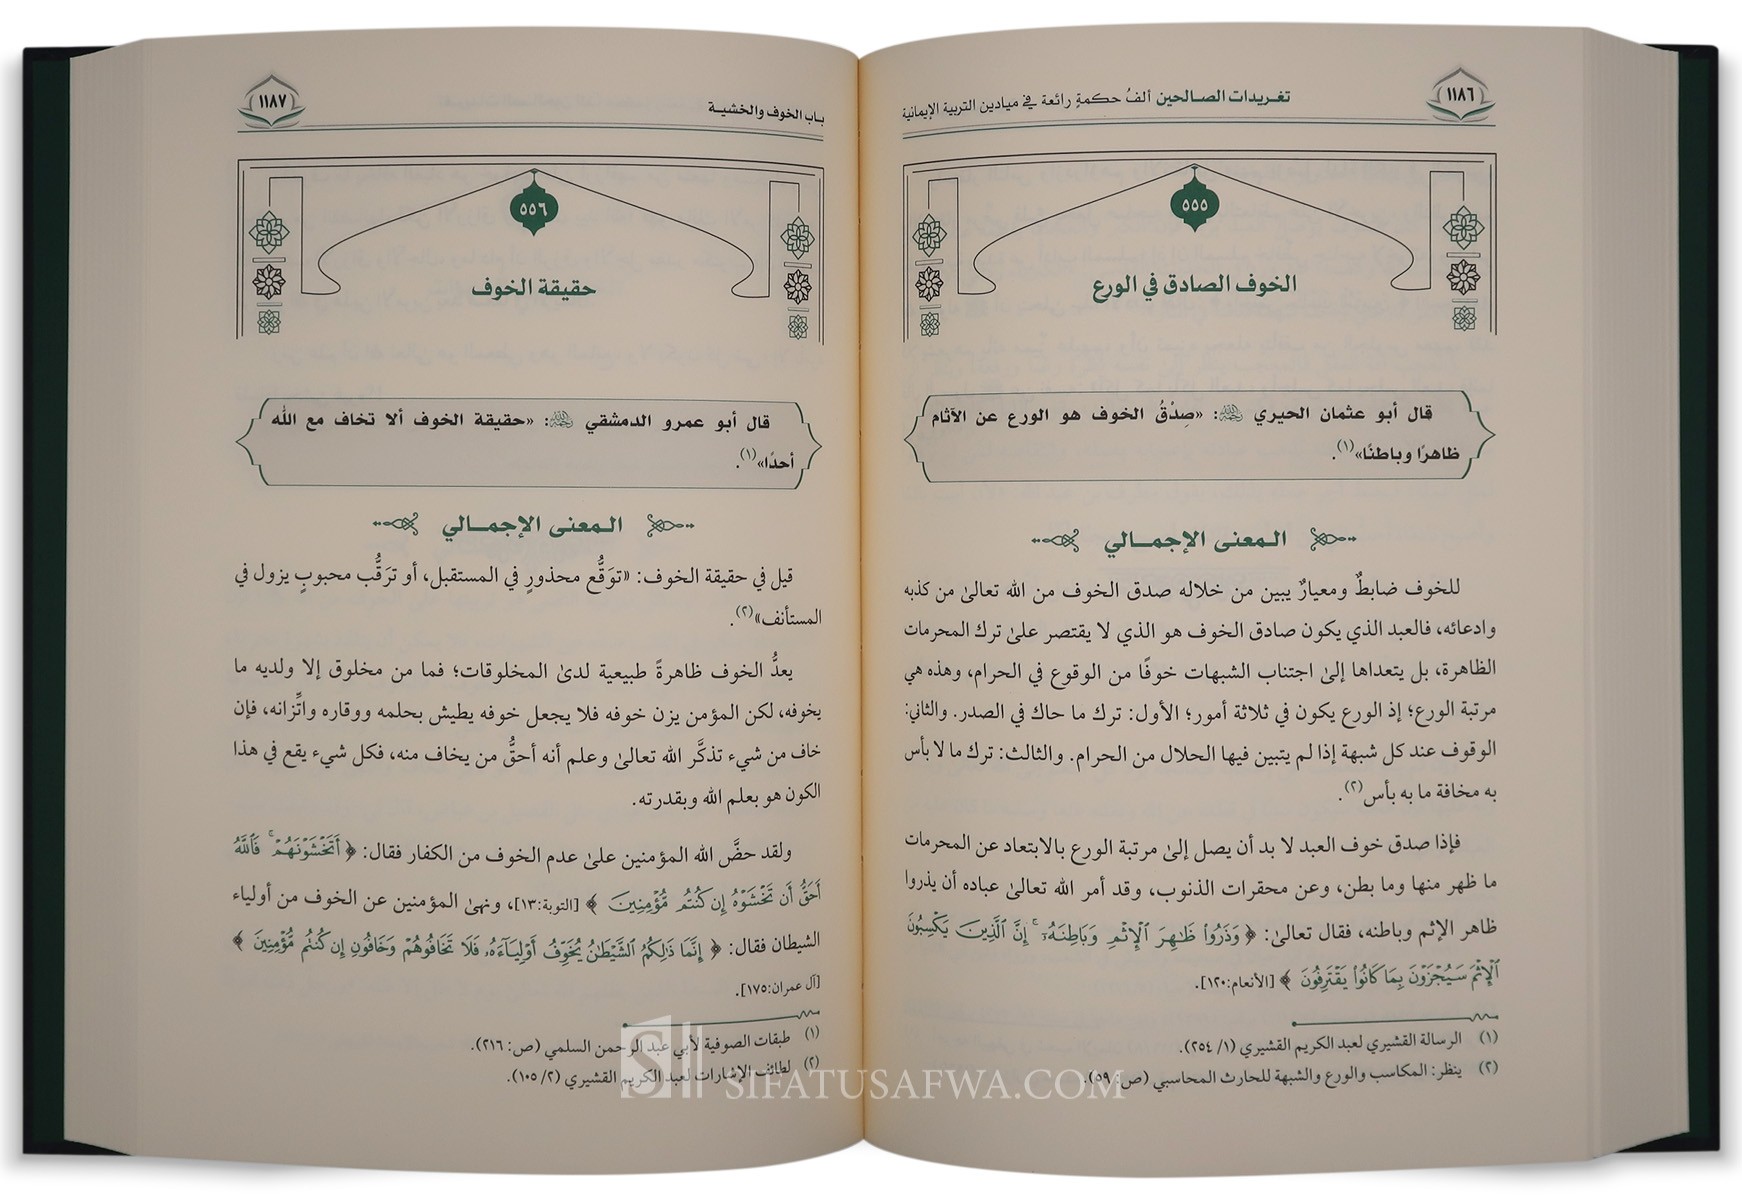 ١١٨٦
تغريدات الصالحين ألفُ حكمةٍ رائعة في ميادين التربية الإيمانية
٥٥٥
الخوف الصادق في الورع
قال أبو عثمان الحيري رحمه الله: «صِدْقُ الخوف هو الورع عن الآثام
ظاهرًا وباطنًا»(١).
المعنى الإجمالي
للخوف ضابطٌ ومعيارٌ يبين من خلاله صدق الخوف من الله تعالىٰ من كذبه
وادعائه، فالعبد الذي يكون صادق الخوف هو الذي لا يقتصر علىٰ ترك المحرمات
الظاهرة، بل يتعداها إلىٰ اجتناب الشبهات خوفًا من الوقوع في الحرام، وهذه هي
مرتبة الورع؛ إذ الورع يكون في ثلاثة أمور؛ الأول: ترك ما حاك في الصدر. والثاني:
الوقوف عند كل شبهة إذا لم يتبين فيها الحلال من الحرام. والثالث: ترك ما لا بأس
به مخافة ما به بأس(٢).
فإذا صدق خوف العبد لا بد أن يصل إلىٰ مرتبة الورع بالابتعاد عن المحرمات
ما ظهر منها وما بطن، وعن محقرات الذنوب، وقد أمر الله تعالىٰ عباده أن يذروا
ظاهر الإثم وباطنه، فقال تعالىٰ: ﴿ وَذَرُوا۟ ظَـٰهِرَ ٱلْإِثْمِ وَبَاطِنَهُۥٓ ۚ إِنَّ ٱلَّذِينَ يَكْسِبُونَ
ٱلْإِثْمَ سَيُجْزَوْنَ بِمَا كَانُوا۟ يَقْتَرِفُونَ ﴾ [الأنعام:١٢٠].
(١) الرسالة القشيري لعبد الكريم القشيري (١/ ٢٥٤).
(٢) ينظر: المكاسب والورع والشبهة للحارث المحاسبي (ص: ٥٩).
باب الخوف والخشية
١١٨٧
٥٥٦
حقيقة الخوف
قال أبو عمرو الدمشقي رحمه الله: «حقيقة الخوف ألا تخاف مع الله
أحدًا»(١).
المعنى الإجمالي
قيل في حقيقة الخوف: «توَقُّع محذورٍ في المستقبل، أو ترَقُّب محبوبٍ يزول في
المستأنف»(٢).
يعدُّ الخوف ظاهرةً طبيعية لدىٰ المخلوقات؛ فما من مخلوق إلا ولديه ما
يخوفه، لكن المؤمن يزن خوفه فلا يجعل خوفه يطيش بحلمه ووقاره واتِّزانه، فإن
خاف من شيء تذكَّر الله تعالىٰ وعلم أنه أحقُّ من يخاف منه، فكل شيء يقع في هذا
الكون هو بعلم الله وبقدرته.
ولقد حضَّ الله المؤمنين علىٰ عدم الخوف من الكفار فقال: ﴿ أَتَخْشَوْنَهُمْ ۚ فَٱللَّهُ
أَحَقُّ أَن تَخْشَوْهُ إِن كُنتُم مُّؤْمِنِينَ ﴾ [التوبة:١٣]، ونهىٰ المؤمنين عن الخوف من أولياء
الشيطان فقال: ﴿ إِنَّمَا ذَٰلِكُمُ ٱلشَّيْطَـٰنُ يُخَوِّفُ أَوْلِيَآءَهُۥ فَلَا تَخَافُوهُمْ وَخَافُونِ إِن كُنتُم مُّؤْمِنِينَ ﴾
[آل عمران:١٧٥].
(١) طبقات الصوفية لأبي عبد الرحمن السلمي (ص: ٢١٦).
(٢) لطائف الإشارات لعبد الكريم القشيري (٢/ ١٠٥).
SIFATUSAFWA.COM